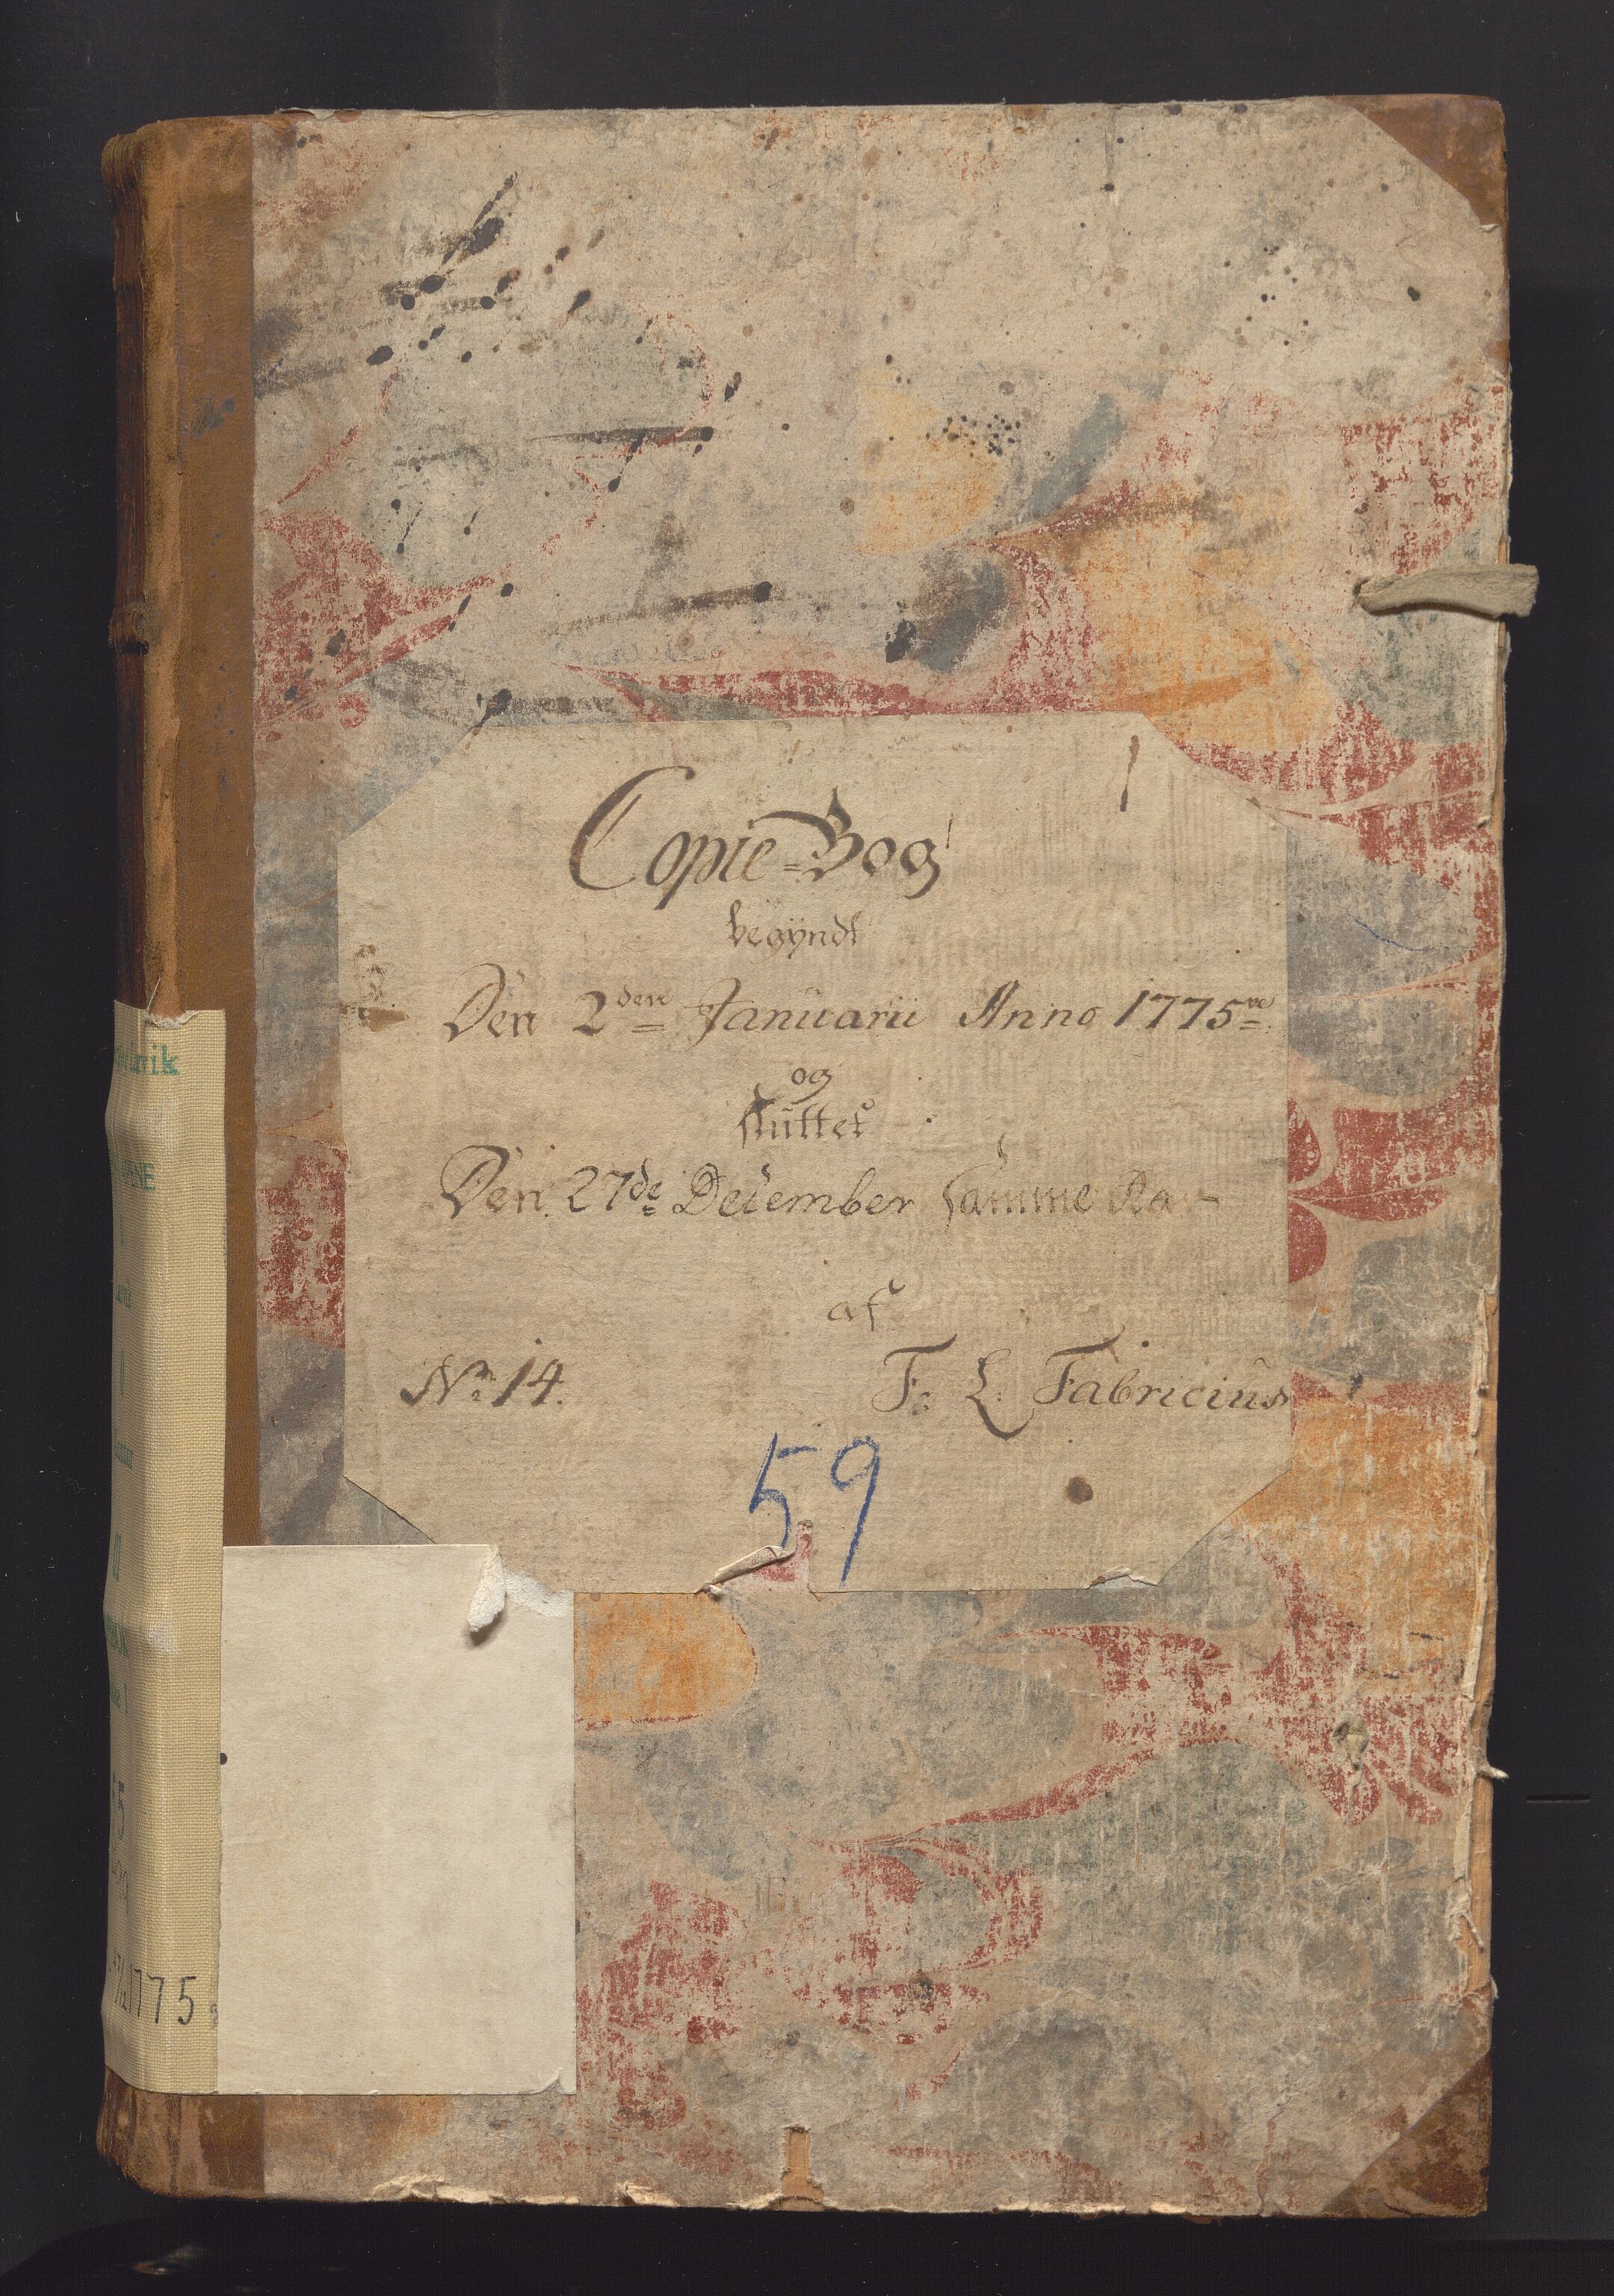 Copie-Bog
begyndt
Den 2den Januarii Anno 1775ve
og
sluttet
Den 27de December samme Aar
af
No 14. F: L: Fabricius
59
vik
1775